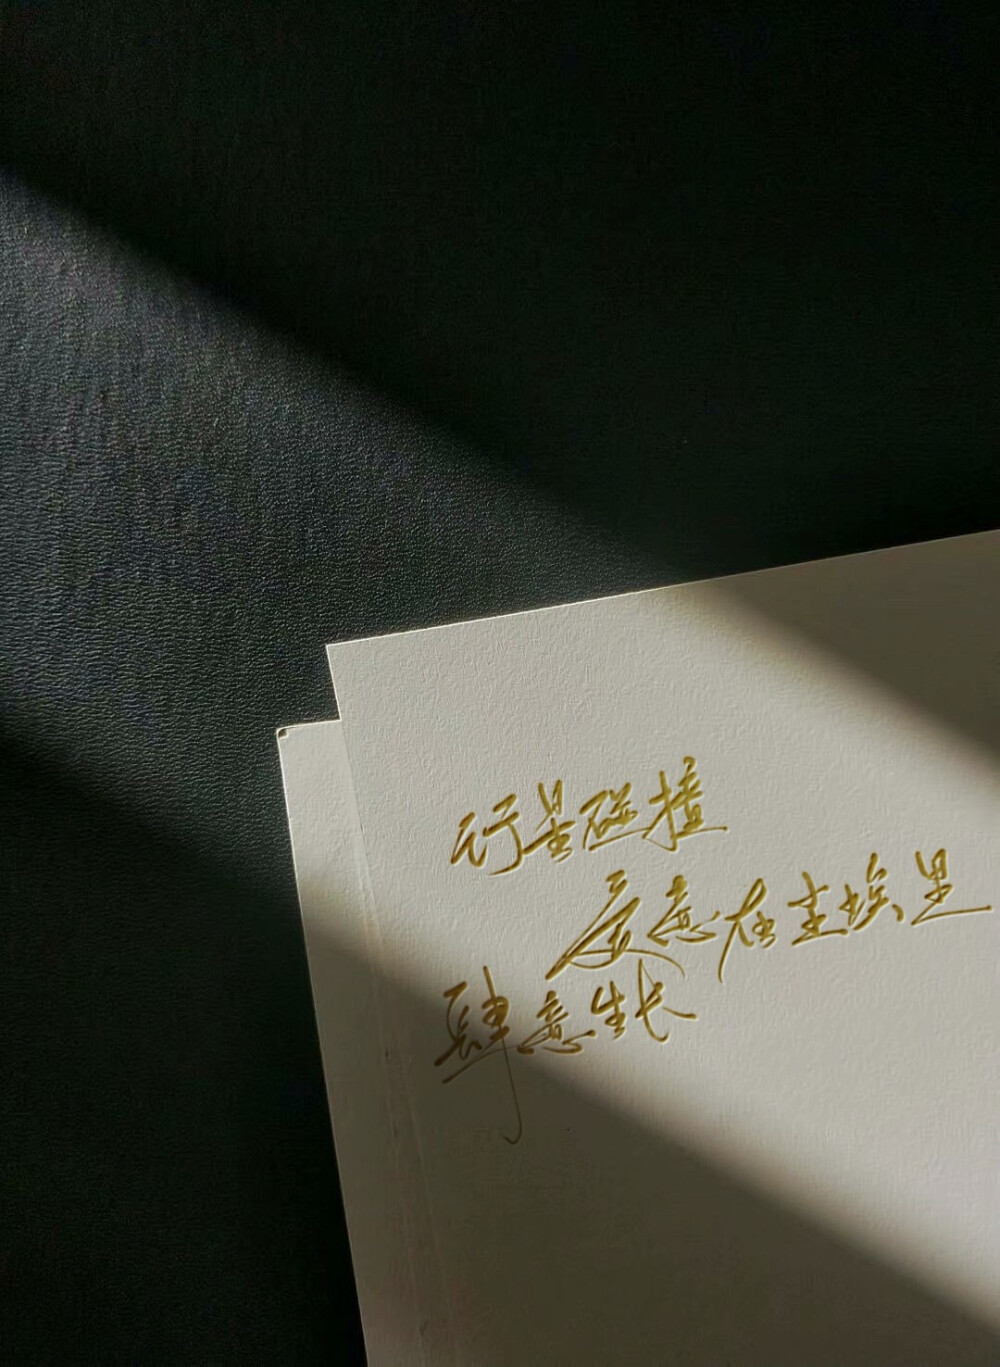 行星碰撞
爱意在尘埃里
肆意生长